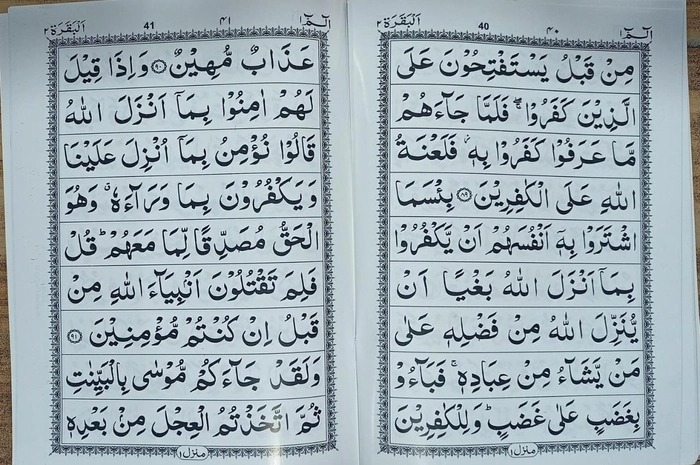 الٓمّٓ ١ ۴۰ 40 اَلْبَقَرَة ٢
مِنْ قَبْلُ يَسْتَفْتِحُوْنَ عَلَى
الَّذِيْنَ كَفَرُوْا ۖۚ فَلَمَّا جَآءَهُمْ
مَّا عَرَفُوْا كَفَرُوْا بِهٖ ؗ فَلَعْنَةُ
اللّٰهِ عَلَى الْكٰفِرِيْنَ ﴿۸۹﴾ بِئْسَمَا
اشْتَرَوْا بِهٖۤ اَنْفُسَهُمْ اَنْ يَّكْفُرُوْا
بِمَاۤ اَنْزَلَ اللّٰهُ بَغْيًا اَنْ
يُّنَزِّلَ اللّٰهُ مِنْ فَضْلِهٖ عَلٰى
مَنْ يَّشَآءُ مِنْ عِبَادِهٖ ۚ فَبَآءُوْ
بِغَضَبٍ عَلٰى غَضَبٍ ؕ وَلِلْكٰفِرِيْنَ
منزل ١
الٓمّٓ ١ ۴۱ 41 اَلْبَقَرَة ٢
عَذَابٌ مُّهِيْنٌ ﴿۹۰﴾ وَاِذَا قِيْلَ
لَهُمْ اٰمِنُوْا بِمَاۤ اَنْزَلَ اللّٰهُ
قَالُوْا نُؤْمِنُ بِمَاۤ اُنْزِلَ عَلَيْنَا
وَيَكْفُرُوْنَ بِمَا وَرَآءَهٗ ۗ وَهُوَ
الْحَقُّ مُصَدِّقًا لِّمَا مَعَهُمْ ؕ قُلْ
فَلِمَ تَقْتُلُوْنَ اَنْۢبِيَآءَ اللّٰهِ مِنْ
قَبْلُ اِنْ كُنْتُمْ مُّؤْمِنِيْنَ ﴿۹۱﴾
وَلَقَدْ جَآءَكُمْ مُّوْسٰى بِالْبَيِّنٰتِ
ثُمَّ اتَّخَذْتُمُ الْعِجْلَ مِنْۢ بَعْدِهٖ
منزل ١